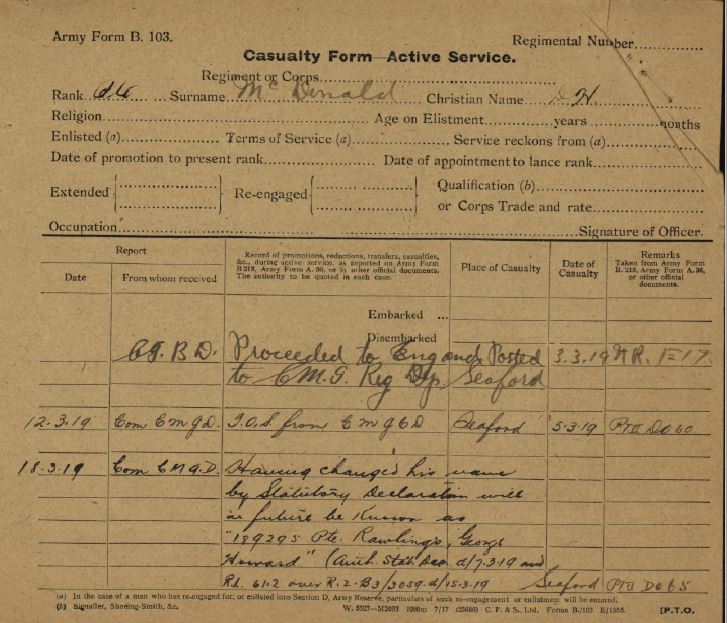 Army Form B. 103.
Regimental Number..............
Casualty Form—Active Service.
Regiment or Corps..............
Rank Pte Surname McDonald Christian Name H.
Religion.............. Age on Elistment..............years..............months
Enlisted (a).............. Terms of Service (a).............. Service reckons from (a)..............
Date of promotion to present rank.............. Date of appointment to lance rank..............
Extended Re-engaged Qualification (b)..............
or Corps Trade and rate..............
Occupation..............Signature of Officer.
Report
Date
From whom received
Record of promotions, reductions, transfers, casualties, &c., during active service, as reported on Army Form B 213, Army Form A. 36, or in other official documents. The authority to be quoted in each case.
Place of Casualty
Date of Casualty
Remarks
Taken from Army Form B. 213, Army Form A. 36, or other official documents.
Embarked ...
Disembarked
B D. Proceeded to England & Posted 3.3.19
to C.M.G. Reg Dep. Seaford
12.3.19 Com C M G D. T.O.S. from C M G C D Seaford 5.3.19 Pt II DO 60
18.3.19 Com C M G. D. Having changed his name
by Statutory Declaration will
in future be Known as
"189295 Pte. Rawlings, George
Howard" (Auth. Stat. Dec. d/7.3.19 and
R.L. 61.2 over R.2.B3/3059 d/15.3.19 Seaford Pt II DO 65
(a) In the case of a man who has re-engaged for, or enlisted into Section D, Army Reserve, particulars of such re-engagement or enlistment will be entered.
(b) Signaller, Shoeing-Smith, &c. W. 5527—M2093 1000m 7/17 (25686) C. P. & S., Ltd. Forms B./103 E/1555. [P.T.O.